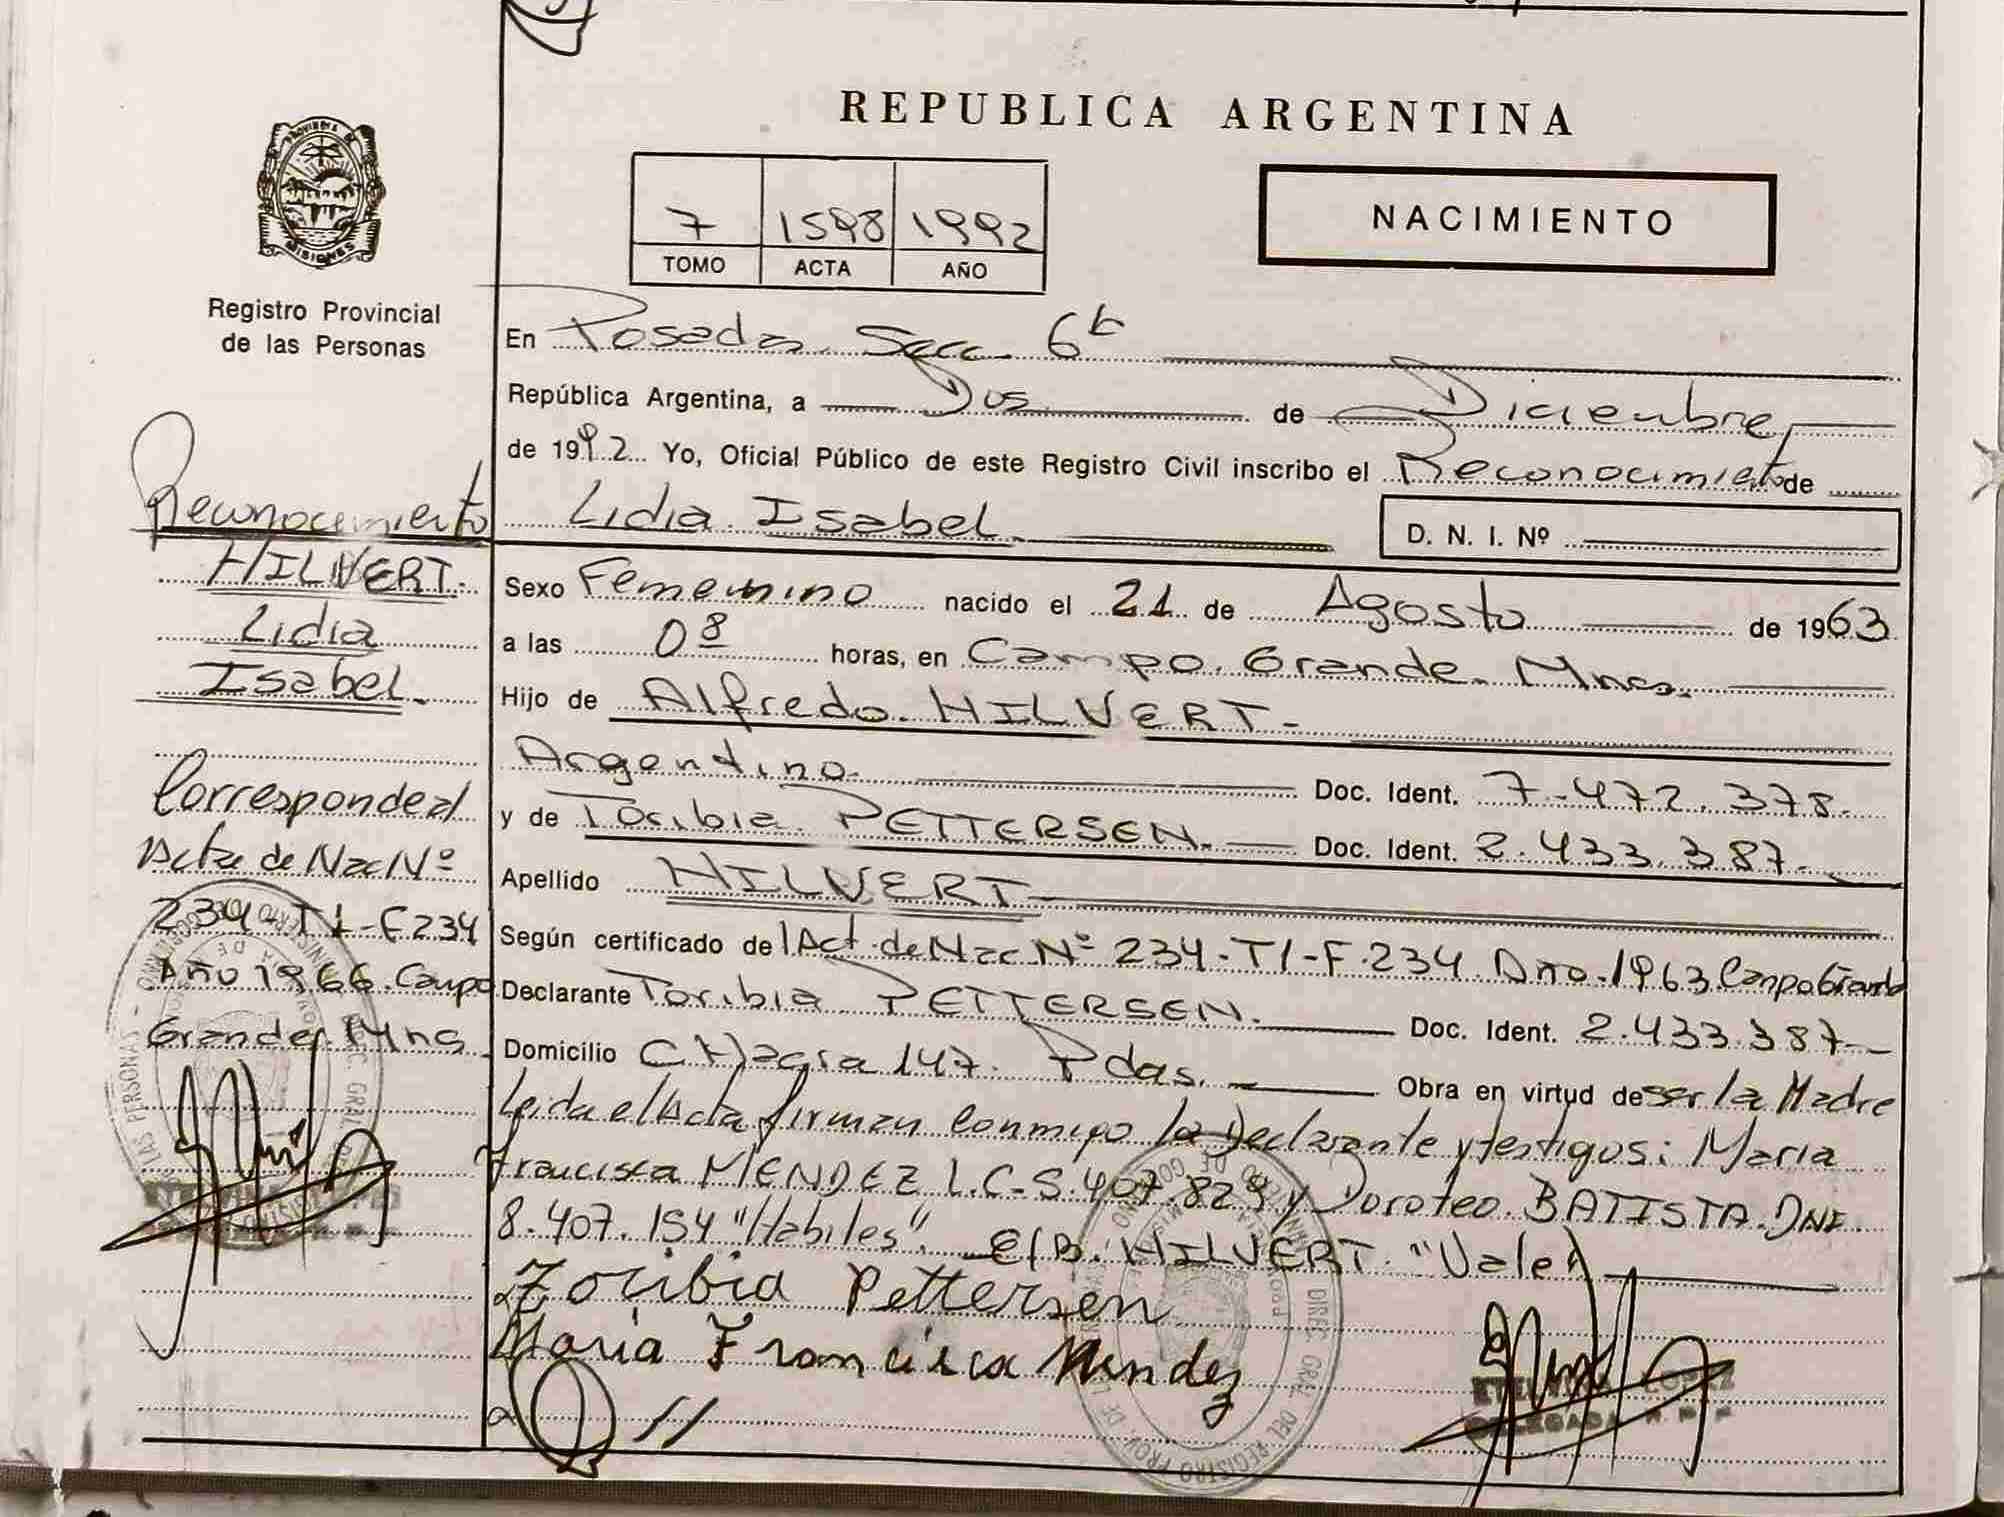 REPUBLICA ARGENTINA
PROVINCIA DE
MISIONES
Registro Provincial
de las Personas
7 1598 1992
TOMO ACTA AÑO
NACIMIENTO
En Posadas Secc. 6ta
República Argentina, a Dos de Diciembre,
de 1992 Yo, Oficial Público de este Registro Civil inscribo el Reconocimiento de
Lidia Isabel. D. N. I. Nº
Sexo Femenino nacido el 21 de Agosto de 1963
a las 08 horas, en Campo Grande. Mnes.
Hijo de Alfredo HILVERT-
Argentino Doc. Ident. 7.472.378-
y de Toribia PETTERSEN. Doc. Ident. 2.433.387-
Apellido HILVERT
Según certificado de Act. de Nac Nº 234-T1-F.234 Año 1963 Campo Grande
Declarante Toribia PETTERSEN. Doc. Ident. 2.433.387-
Domicilio CHacra 147. Pdas. Obra en virtud de ser la Madre
Leida el Acta firman conmigo la Declarante y testigos: Maria
Francisca MENDEZ L.C-5.407.829 y Doroteo BATISTA. DNI
8.407.154 "Habiles". E/B. HILVERT "Vale"
Toribia Pettersen
Maria Francisca Mendez
Reconocimiento
HILVERT.
Lidia
Isabel.
Corresponde al
Acta de Nac Nº
234-T1-F234
Año 1966 Campo
Grande. Mnes
LAS PERSONAS
DIREC. GRAL. DEL REGISTRO PROV. DE